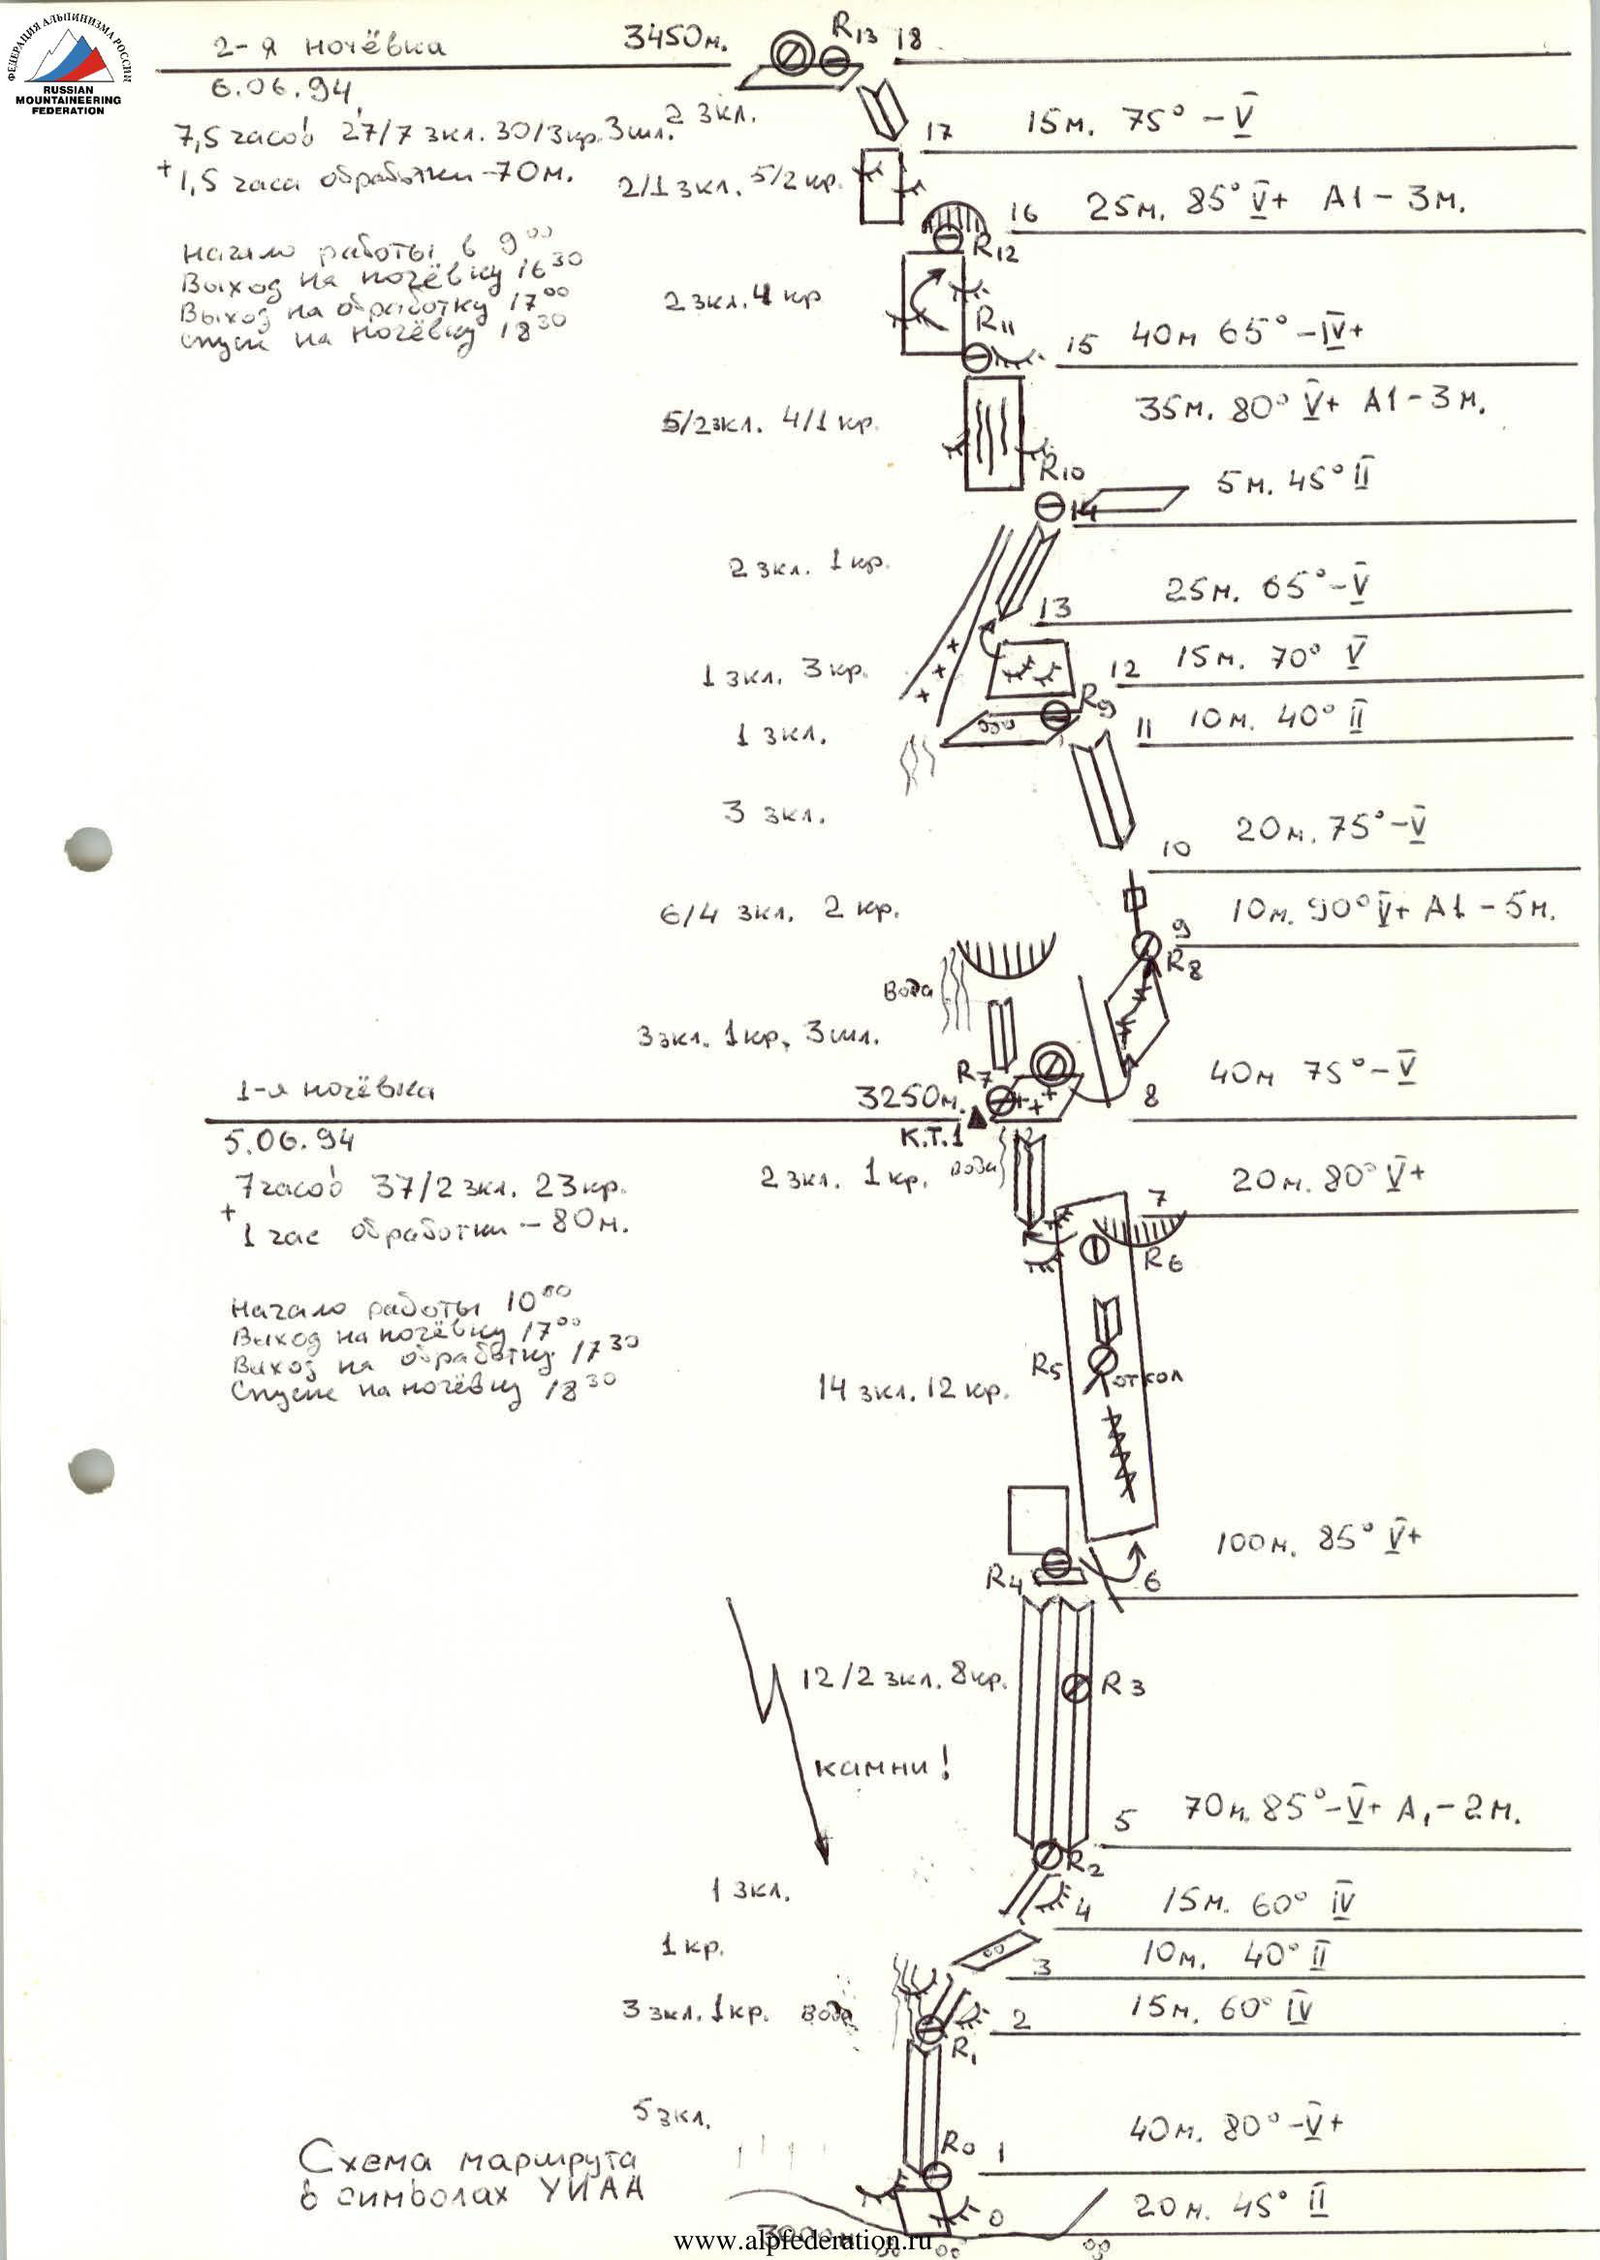 ФЕДЕРАЦИЯ АЛЬПИНИЗМА РОССИИ
RUSSIAN
MOUNTAINEERING
FEDERATION
2-я ночёвка 3450м. R13 18
6.06.94
7,5 часов 27/7 зкл. 30/3кр. 3шл. 2 зкл. 17 15м. 75° - V
+ 1,5 часа обработки - 70м. 2/1 зкл. 5/2 кр. 16 25м. 85° V+ A1 - 3м.
R12
Начало работы в 9 00
Выход на ночёвку 16 30
Выход на обработку 17 00
Спуск на ночёвку 18 30
2 зкл. 4 кр R11 15 40м 65° - IV+
5/2зкл. 4/1 кр. 35м. 80° V+ A1 - 3м.
R10 14 5м. 45° II
2 зкл. 1 кр. 13 25м. 65° - V
1 зкл. 3 кр. 12 15м. 70° V
R9
1 зкл. 11 10м. 40° II
3 зкл. 10 20м. 75° - V
6/4 зкл. 2 кр. 9 10м. 90° V+ A1 - 5м.
R8
вода
3зкл. 1кр. 3шл. R7 8 40м 75° - V
1-я ночёвка 3250м.
К.Т.1
5.06.94
7часов 37/2 зкл. 23кр. 2 зкл. 1 кр. вода 7 20м. 80° V+
+ 1 час обработки - 80м.
R6
Начало работы 10 00
Выход на ночёвку 17 00
Выход на обработку 17 30
Спуск на ночёвку 18 30
R5 откол
14 зкл. 12 кр.
R4 6 100м. 85° V+
12/2 зкл. 8кр. R3
камни!
5 70м. 85° - V+ A1 - 2м.
R2
1 зкл. 4 15м. 60° IV
1 кр. 3 10м. 40° II
3 зкл. 1кр. вода 2 15м. 60° IV
R1
5 зкл. R0 1 40м. 80° - V+
Схема маршрута
в символах УИАА
0 20м. 45° II
www.alpfederation.ru